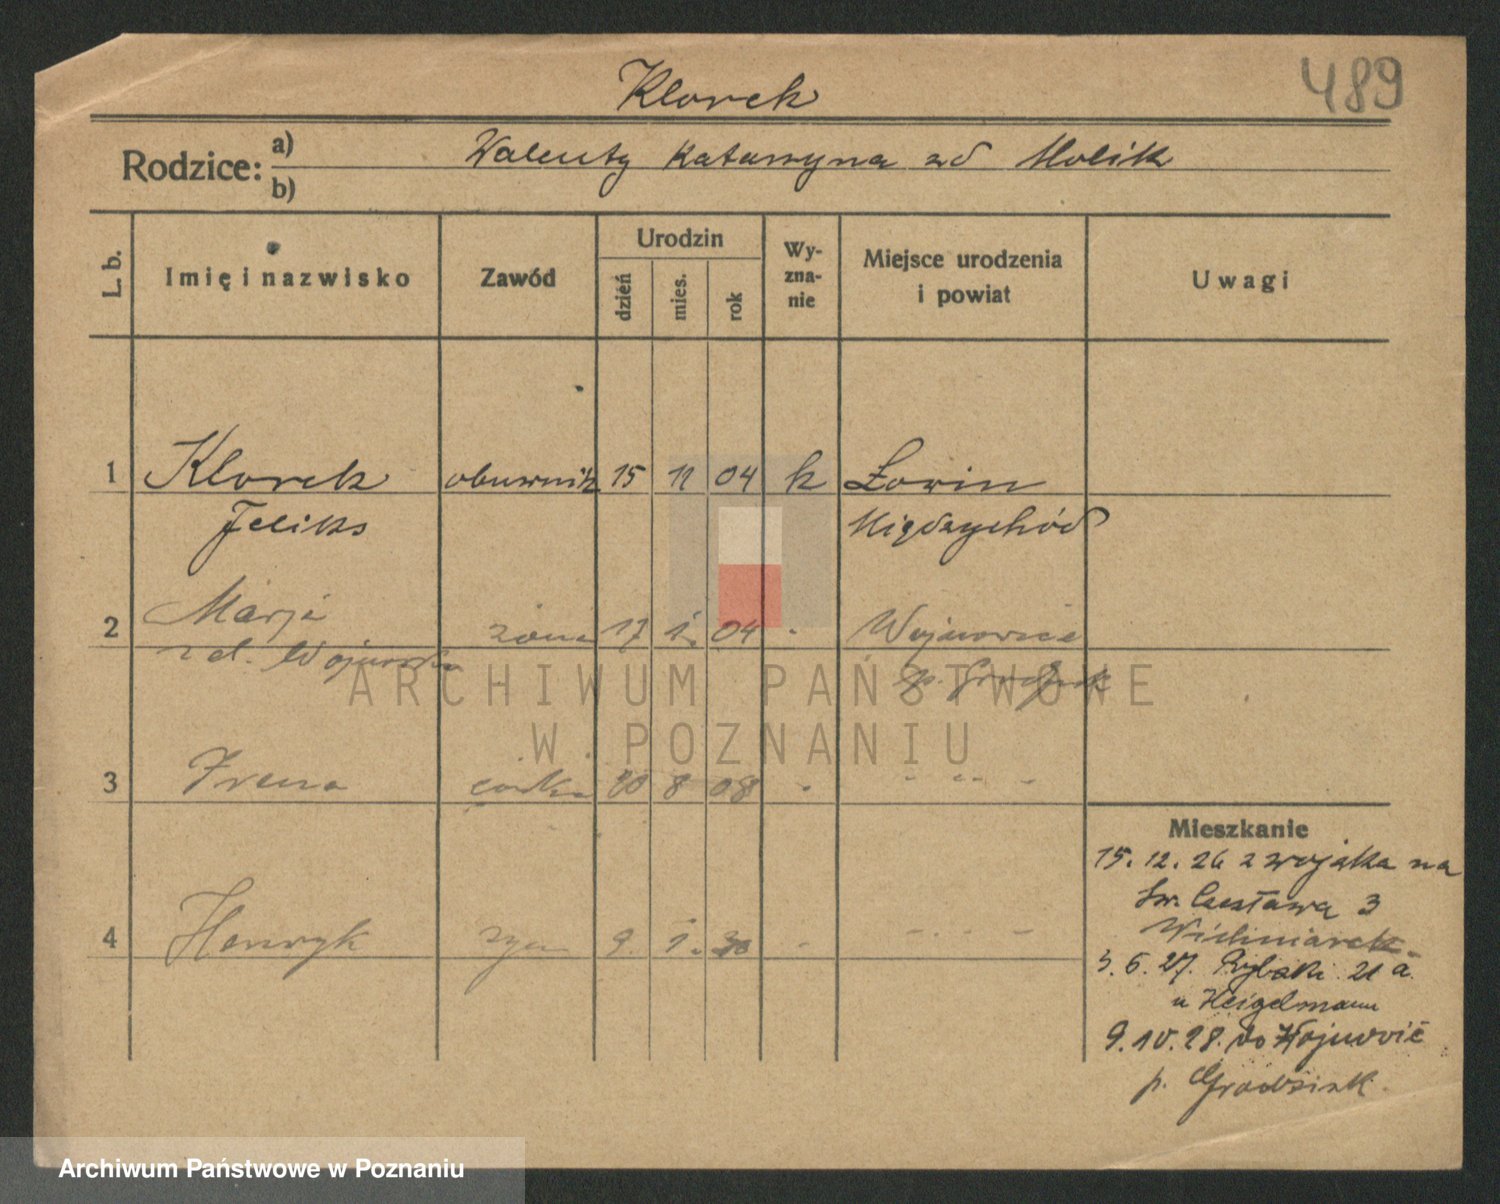 489
Klorek
Rodzice: a) Walenty Katarzyna zd Molik
b)
L. b.
Imię i nazwisko
Zawód
Urodzin
dzień
mies.
rok
Wy-
zna-
nie
Miejsce urodzenia
i powiat
Uwagi
1 Klorek obuwnik 15 11 04 k Łowin
Feliks Międzychód
2 Marja żona 17 1. 04 - Wojnowice
zd. p.
3 Irena córka 8 08 - - „ -
4 Henryk syn 9. 1. - - „ -
Mieszkanie
15. 12. 26 z wojska na
Św. Czesława 3
3. 6. 27. Rybaki 21 a
u Heigelmann
9. 10. 28. do Wojnowic
p. Grodzisk
ARCHIWUM PAŃSTWOWE
W POZNANIU
Archiwum Państwowe w Poznaniu